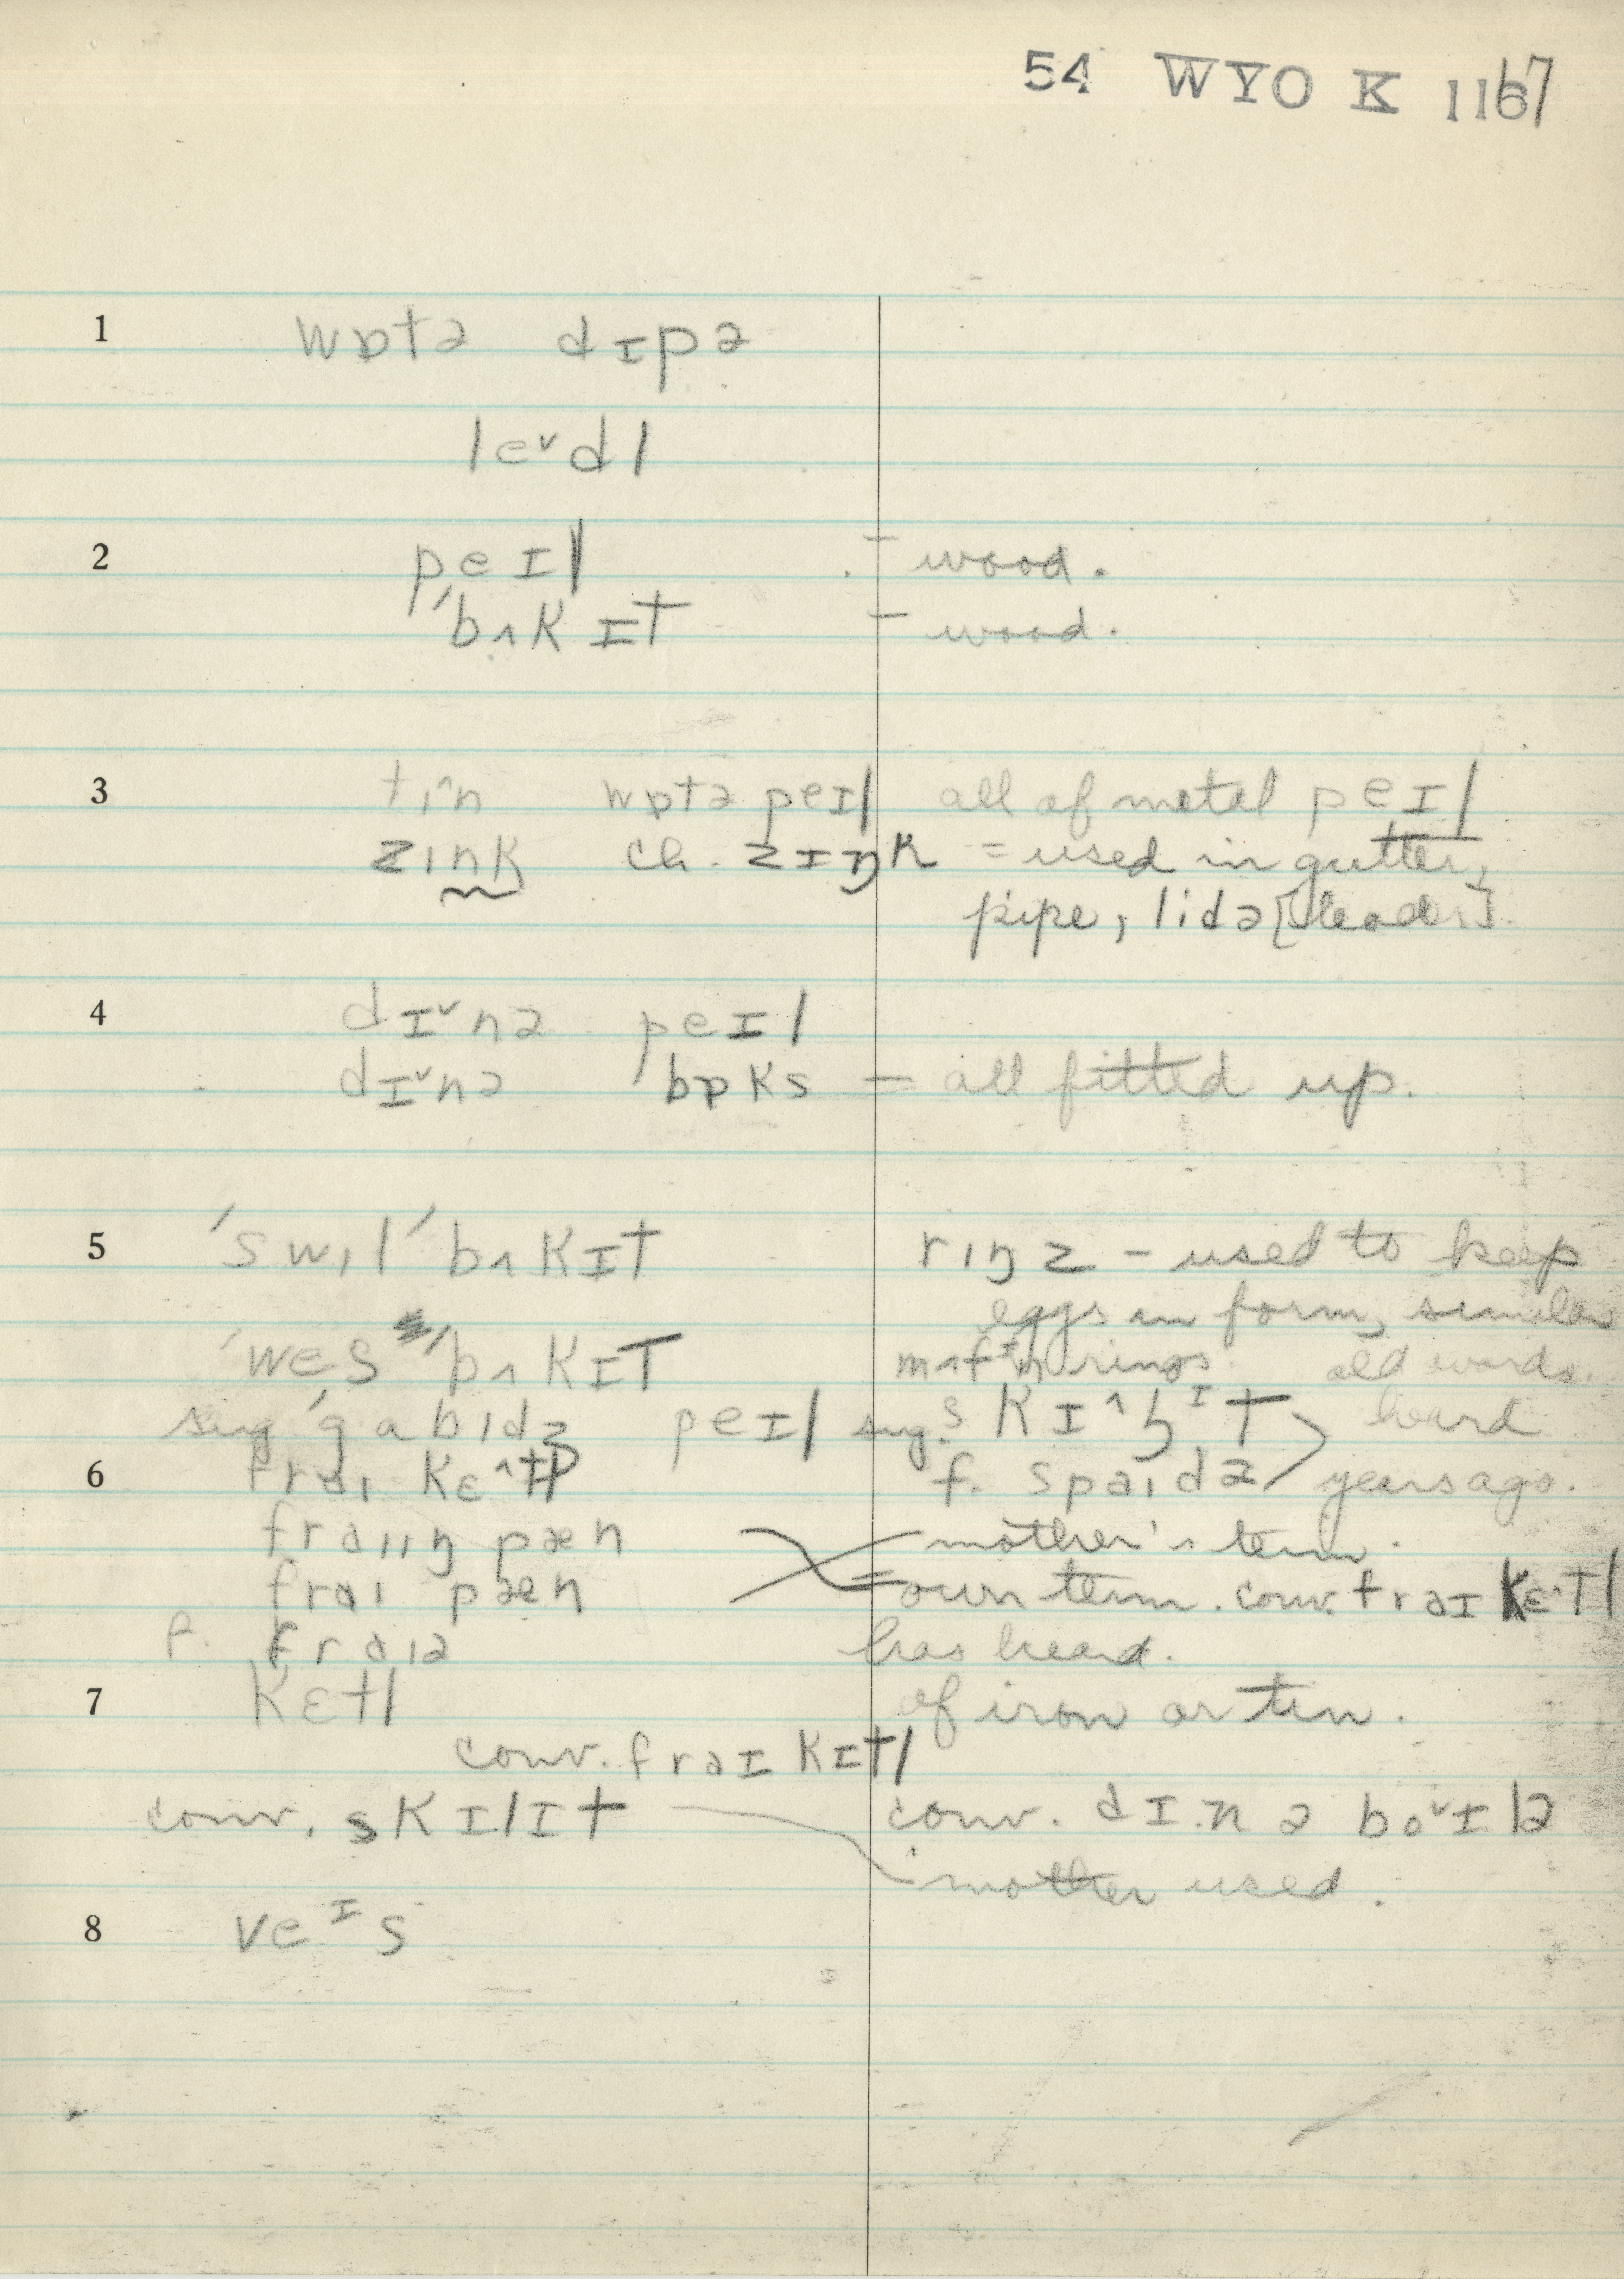 54 WYO K 1167
1 wɒtə dɪpə
le˅dl
2 peɪl - wood.
ˈbʌkɪt - wood.
3 tɪ^n wɒtə peɪl all of metal peɪl
zɪnk ch. zɪŋk = used in gutter,
pipe, lidə [leader].
4 dɪ˅nə peɪl
dɪ˅nə bɒks = all fitted up.
5 ˈswɪlˈbʌkɪt rɪŋz - used to keep
eggs in form, similar
ˈwesˈbʌkɪt rings. old words.
sug. ˈgabɪdʒ peɪl sug. heard
6 fraɪ kɛ^tl f. spaɪdə years ago.
fraɪɪŋ pæn mother's term.
fraɪ pæn = own term. conv. fraɪ kɛ^tl
f. fraɪə has heard.
7 kɛtl of iron or tin.
conv. fraɪ kɪtl
conv. skɪlɪt conv. dɪnə bo˅ɪlə
mother used.
8 veᶦs